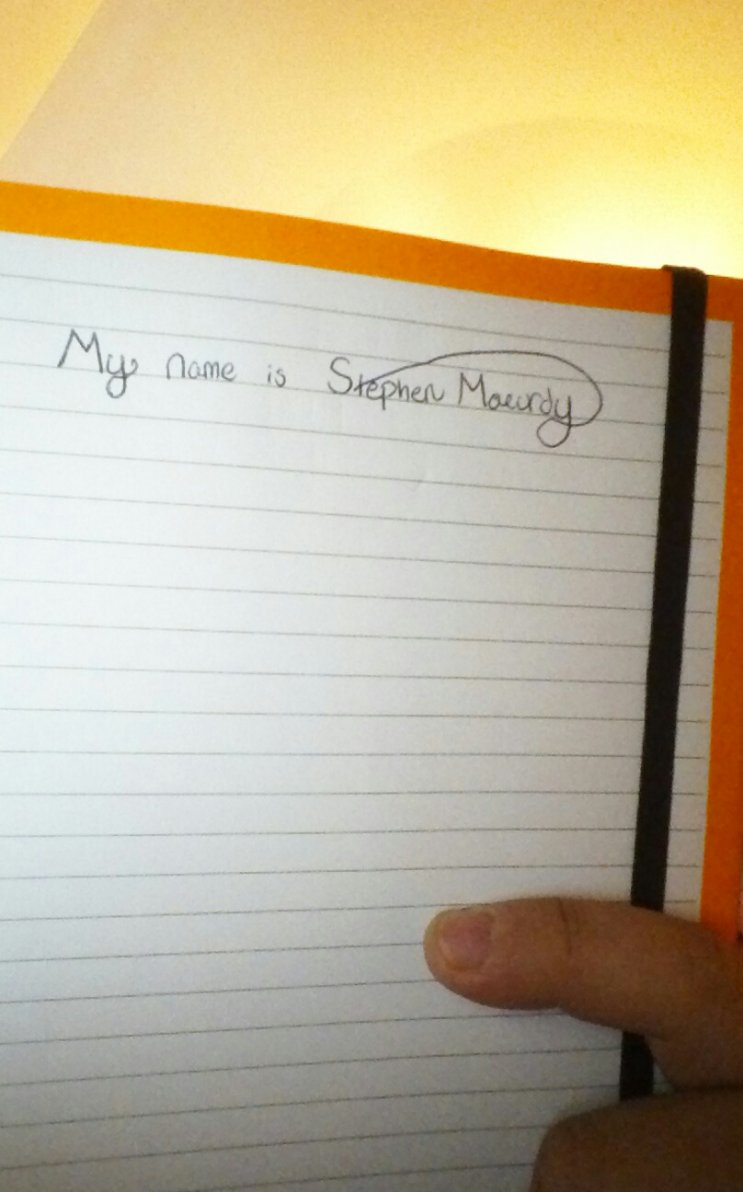 My name is Stephen